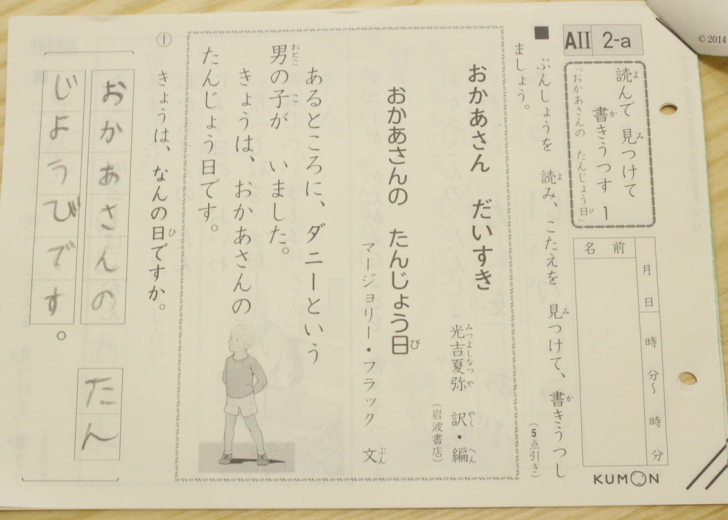 © 2014
AII 2-a
読んで 見つけて
書きうつす 1
「おかあさんの たんじょう日」
名前
月 日
時 分〜 時 分
KUMON
■ ぶんしょうを 読み、こたえを 見つけて、書きうつし
ましょう。
(5点引き)
おかあさん だいすき
光吉夏弥 訳・編
(岩波書店)
おかあさんの たんじょう日
マージョリー・フラック 文
あるところに、ダニーという
男の子が いました。
きょうは、おかあさんの
たんじょう日です。
① きょうは、なんの日ですか。
おかあさんの たん
じょうびです。